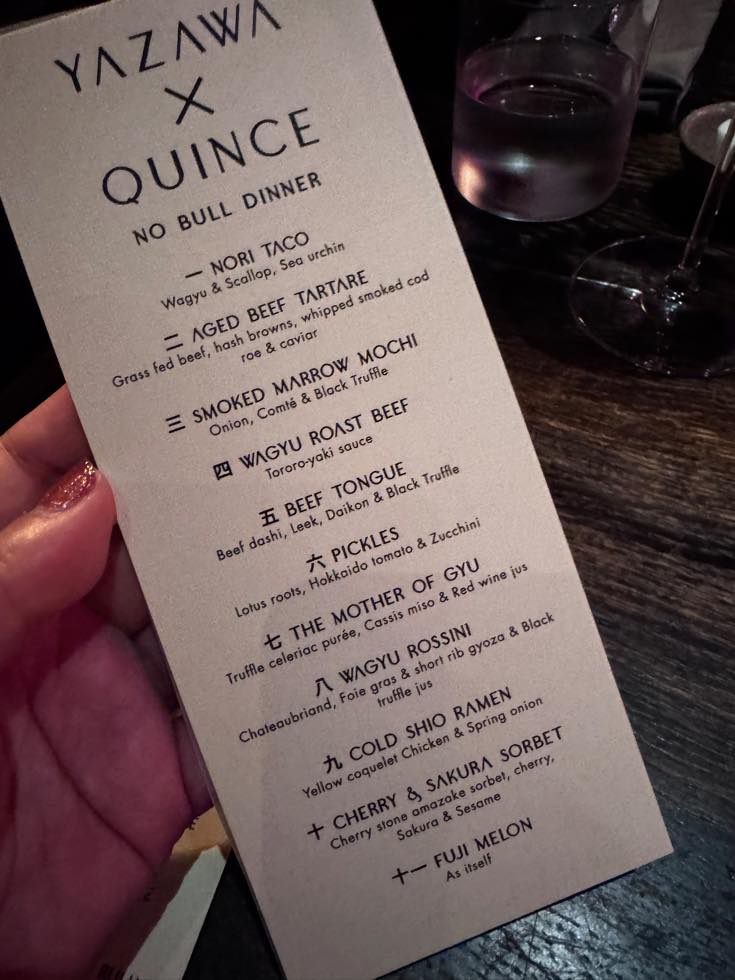 YAZAWA
X
QUINCE
NO BULL DINNER
一 NORI TACO
Wagyu & Scallop, Sea urchin
二 AGED BEEF TARTARE
Grass fed beef, hash browns, whipped smoked cod
roe & caviar
三 SMOKED MARROW MOCHI
Onion, Comté & Black Truffle
四 WAGYU ROAST BEEF
Tororo-yaki sauce
五 BEEF TONGUE
Beef dashi, Leek, Daikon & Black Truffle
六 PICKLES
Lotus roots, Hokkaido tomato & Zucchini
七 THE MOTHER OF GYU
Truffle celeriac purée, Cassis miso & Red wine jus
八 WAGYU ROSSINI
Chateaubriand, Foie gras & short rib gyoza & Black
truffle jus
九 COLD SHIO RAMEN
Yellow coquelet Chicken & Spring onion
十 CHERRY & SAKURA SORBET
Cherry stone amazake sorbet, cherry,
Sakura & Sesame
十一 FUJI MELON
As itself